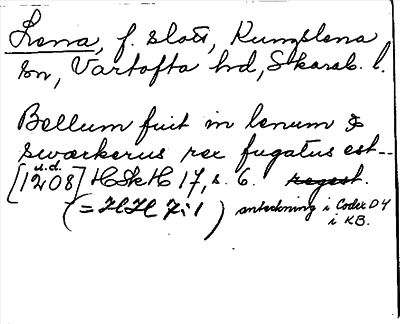 Lena, f. slott, Kungslena
sn, Vartofta hd, Skarab. l.
Bellum fuit in lenum &
swærkerus rex fugatus est--
u.d.
[1208] HSkH 17, s. 6. regest.
(= HH 7:1) anteckning i Codex D 4
i KB.